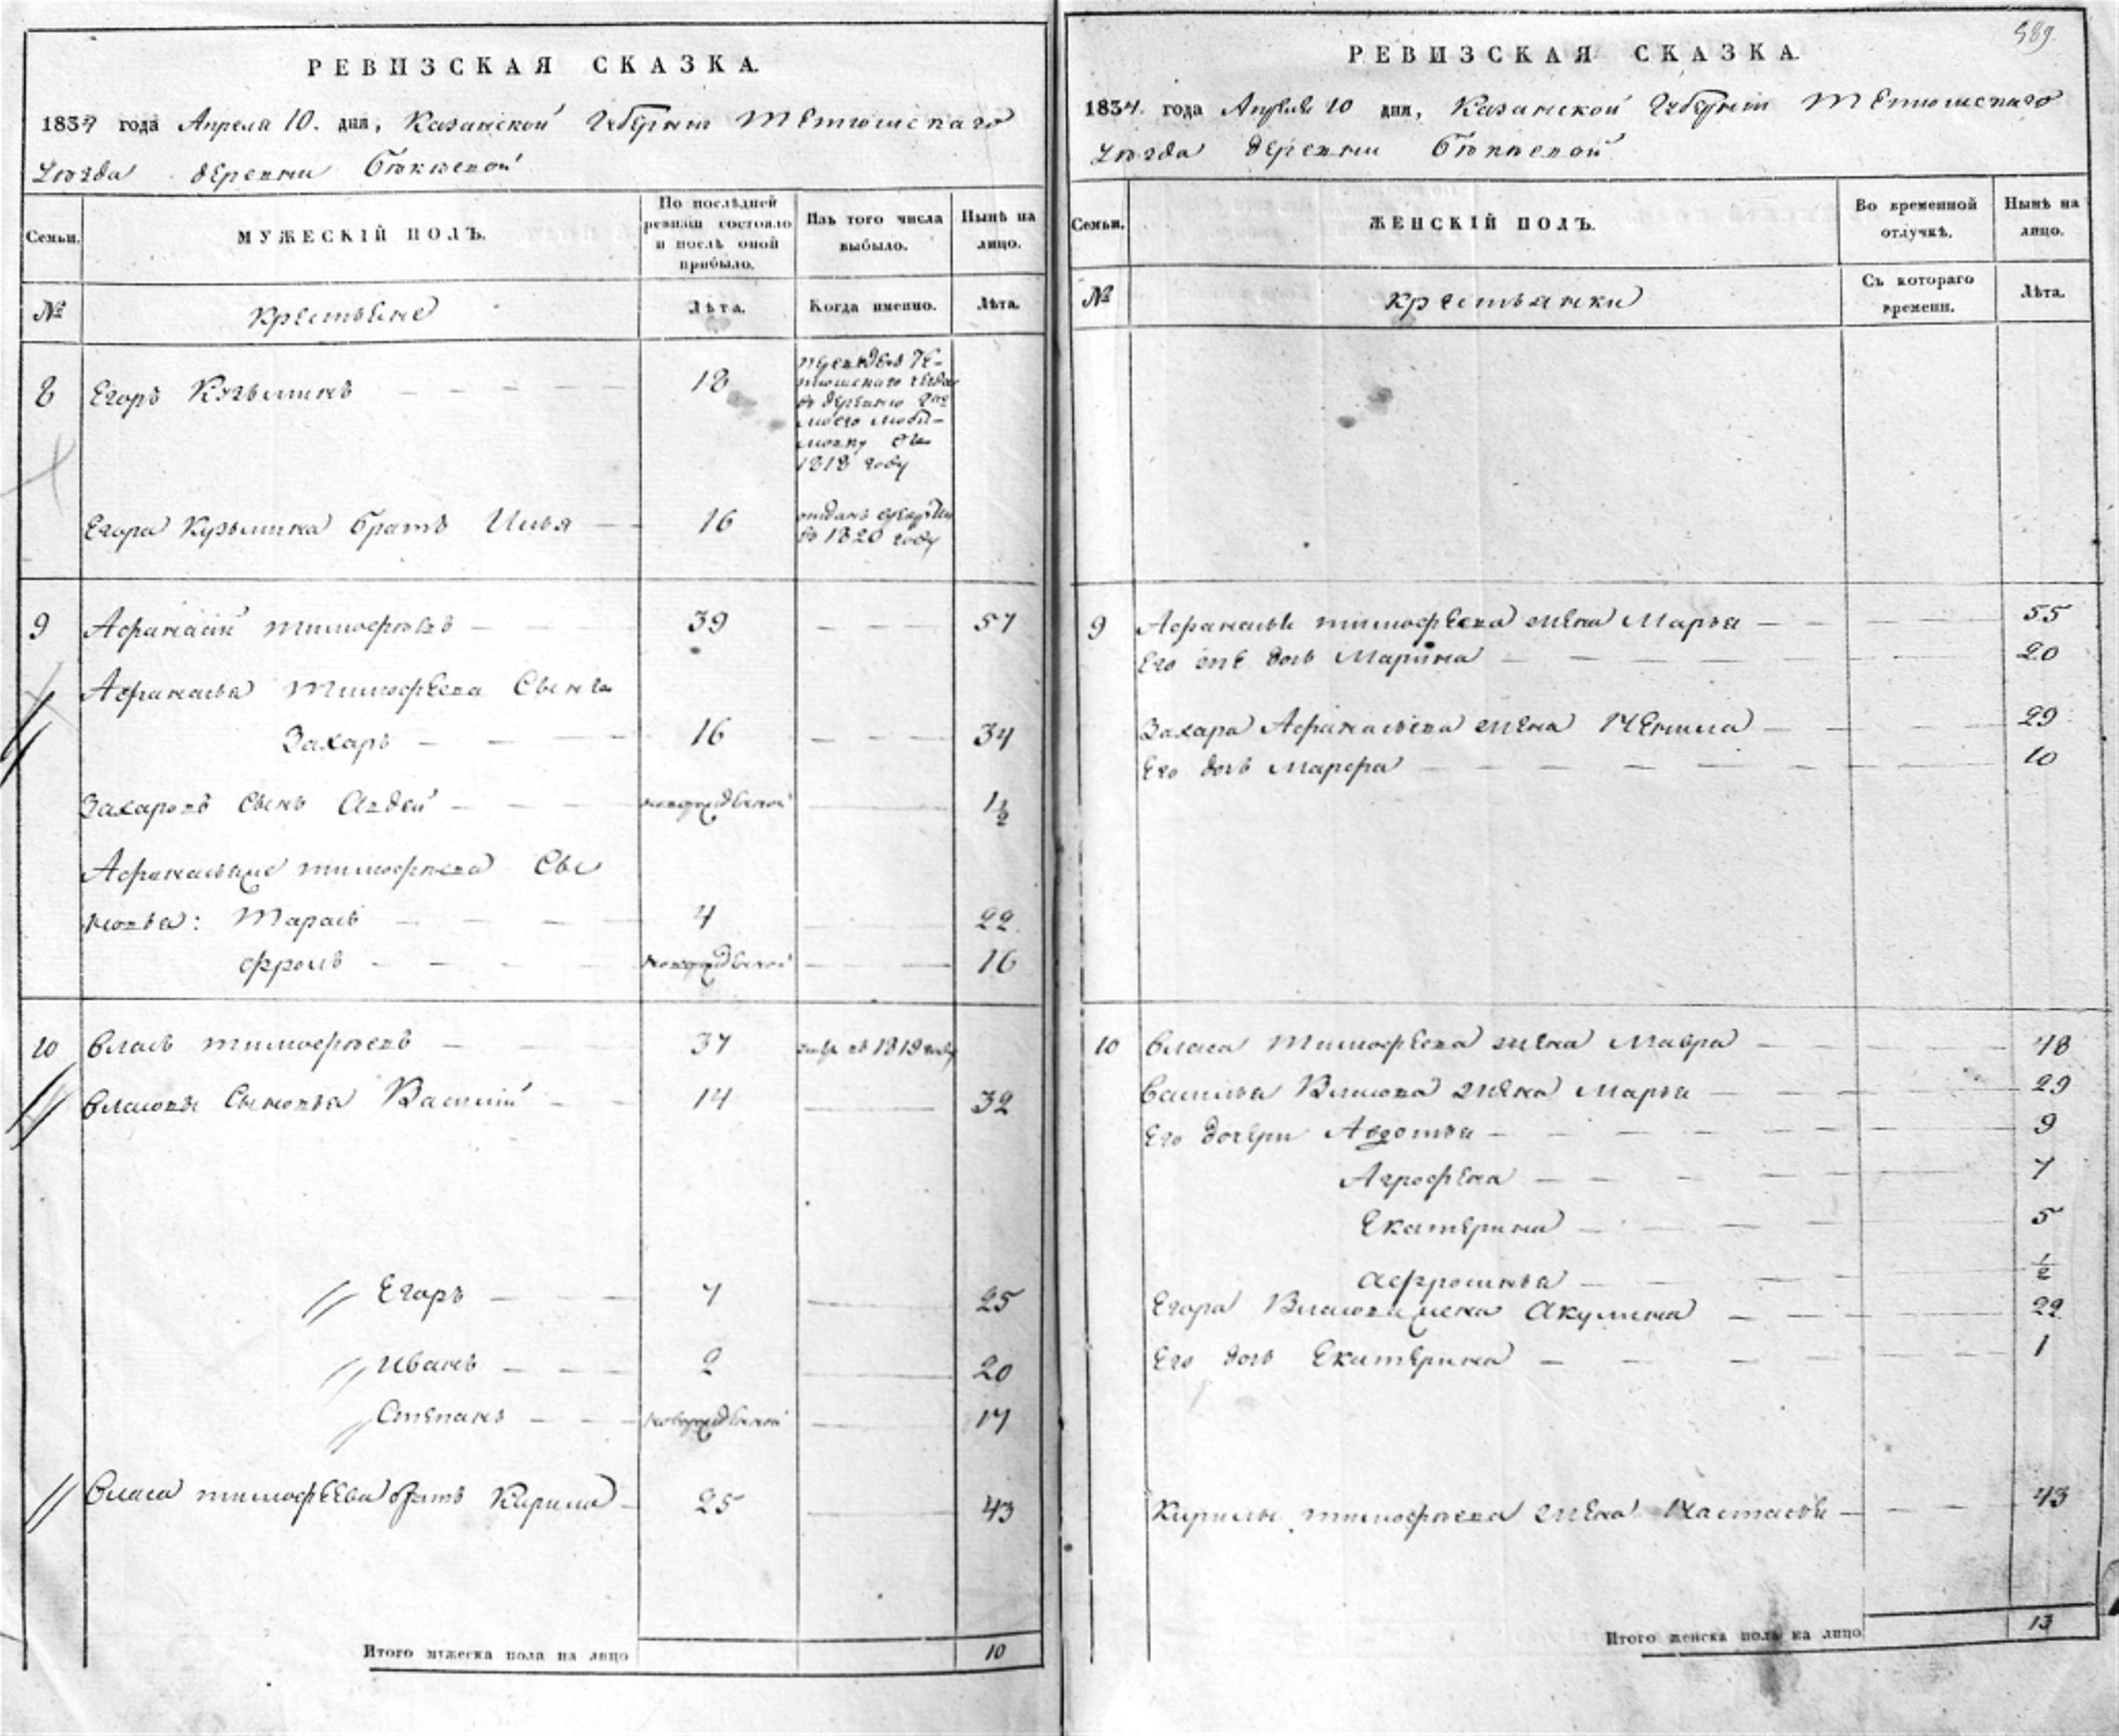 РЕВИЗСКАЯ СКАЗКА.
1834 года Апреля 10. дня, Казанской Губерніи Тетюшскаго
Уѣзда деревни Бѣкѣевой
Семьи.
МУЖЕСКІЙ ПОЛЪ.
По послѣдней ревизіи состояло и послѣ оной прибыло.
Изъ того числа выбыло.
Нынѣ на лицо.
№
Крестьяне
Лѣта.
Когда именно.
Лѣта.
8 Егоръ Кузьминъ 18
Тетюшскаго уезда
въ деревню
1818 году
Егора Кузьмина братъ Илья 16 отданъ
въ 1820 году
9 Афанасій Тимофѣевъ 39 57
Афанасья Тимофеева Сынъ
Захаръ 16 34
Захаровъ Сынъ Авдей новорожденной 1 1/2
Афанасья же Тимофѣева Сы
новья: Тарасъ 4 22
Фролъ новорожденной 16
10 Власъ Тимофѣевъ 37 умре въ 1819 году
Власовы Сыновья Василій 14 32
Егоръ 7 25
Иванъ 2 20
Степанъ новорожденной 17
Власа Тимофеева братъ Кирила 25 43
Итого мужеска пола на лицо 10
589.
РЕВИЗСКАЯ СКАЗКА.
1834. года Апреля 10 дня, Казанской Губерніи Тетюшскаго
Уѣзда деревни Бѣкѣевой
Семьи.
ЖЕНСКІЙ ПОЛЪ.
Во временной отлучкѣ.
Нынѣ на лицо.
№
Крестьянки
Съ котораго времени.
Лѣта.
9 Афанасья Тимофеева жена Марья 55
Его же дочь Марина 20
Захара Афанасьева жена Ненила 29
Его дочь Марфа 10
10 Власа Тимофеева жена Мавра 48
Василья Власова жена Марья 29
Его дочери Авдотья 9
Агрофена 7
Екатерина 5
Афросинья 1/2
Егора Власова жена Акулина 22
Его дочь Екатерина 1
Кирилы Тимофѣева жена Настасья 43
Итого женска пола на лицо 13